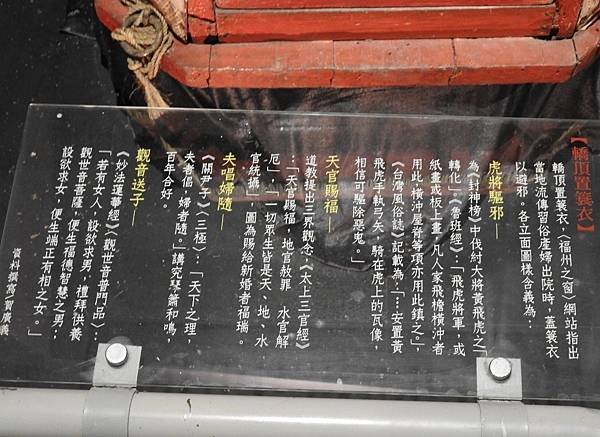 【轎頂置簑衣】
轎頂置簑衣，〈福州之窗〉網站指出
當地流傳習俗產婦出院時，蓋簑衣
以避邪。各立面圖樣含義為：
虎將驅邪—
為《封神榜》中伐紂大將黃飛虎之
轉化」，《魯班經》：「飛虎將軍，或
紙畫或板上畫，凡人家飛檐橫沖者
用此，橫沖屋脊等項亦用此鎮之。」，
《台灣風俗誌》記載為：「…安置黃
飛虎手執弓矢，騎在虎上的瓦像，
相信可驅除惡鬼。」
天官賜福—
道教提出三界觀念。《太上三官經》
：「天官賜福，地官赦罪，水官解
厄」，「一切眾生皆是天、地、水
官統攝。」圖為賜給新婚者福瑞。
夫唱婦隨—
《關尹子》〈三極〉：「天下之理，
夫者倡，婦者隨。」講究琴簫和鳴，
百年合好。
觀音送子—
《妙法蓮華經》〈觀世音普門品〉：
「若有女人，設欲求男，禮拜供養
觀世音菩薩，便生福德智慧之男，
設欲求女，便生端正有相之女。」
資料撰寫 賀廣義